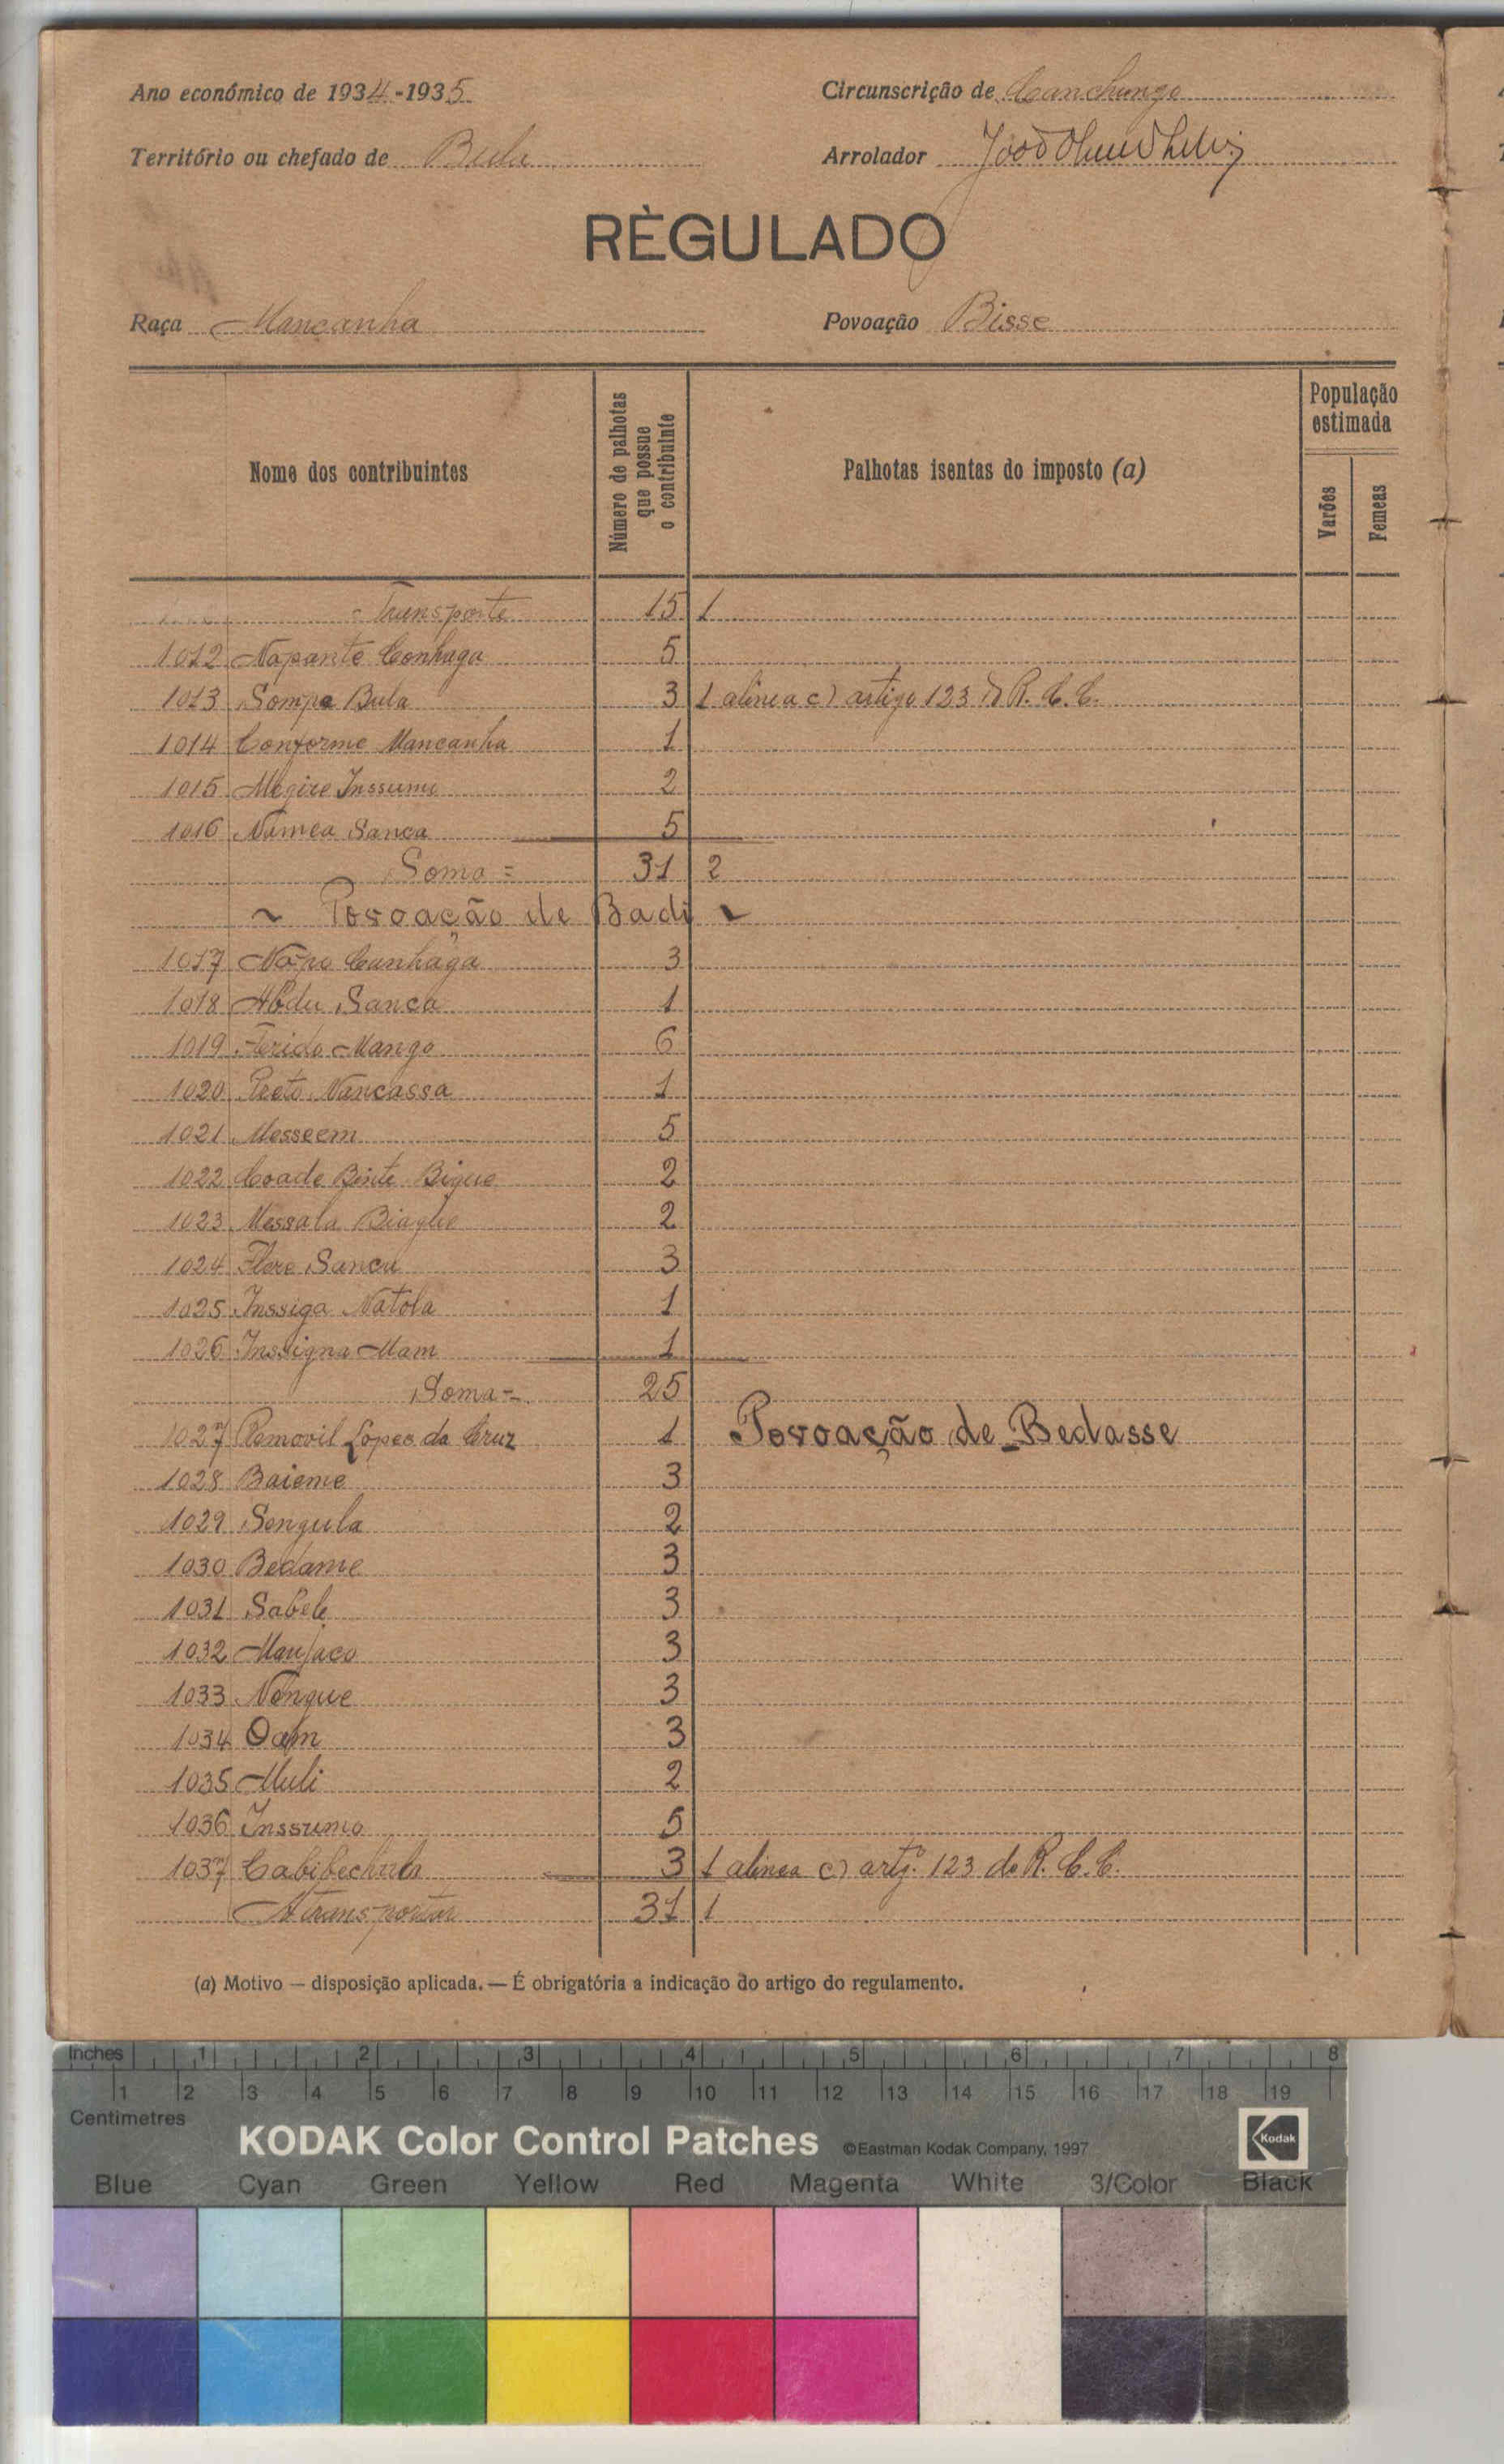 Ano económico de 1934-1935
Circunscrição de Canchungo
Território ou chefado de Bula
Arrolador
RÈGULADO
Raça Mancanha
Povoação Bisse
Nome dos contribuintes
Número de palhotas que possue o contribuinte
Palhotas isentas do imposto (a)
População estimada
Varões
Femeas
Transporte 15 1
1012 Napante Conhaga 5
1013 Sompe Bula 3 1 alinea c) artigo 123 do R. C. C.
1014 Conforme Mancanha 1
1015 Megire Inssumo 2
1016 Namca Sanca 5
Soma = 31 2
~ Povoação de Badi ~
1017 Napo Canhaga 3
1018 Abdu Sanca 1
1019 Ferido Mango 6
1020 Preto Nancassa 1
1021 Messeem 5
1022 Coade Binte Bigue 2
1023 Messala Biague 2
1024 Flore Sanca 3
1025 Inssiga Natola 1
1026 Inssigna Mam 1
Soma = 25
1027 Lopes da Cruz 1 Povoação de Bedasse
1028 Baieme 3
1029 Sengula 2
1030 Bedame 3
1031 Sabele 3
1032 Manjaco 3
1033 Nongue 3
1034 Oam 3
1035 Muli 2
1036 Inssumo 5
1037 3 1 alinea c) artgº. 123 do R. C. C.
A transportar 31 1
(a) Motivo — disposição aplicada. — É obrigatória a indicação do artigo do regulamento.
Inches 1 2 3 4 5 6 7 8
1 2 3 4 5 6 7 8 9 10 11 12 13 14 15 16 17 18 19
Centimetres
KODAK Color Control Patches ©Eastman Kodak Company, 1997 Kodak
Blue Cyan Green Yellow Red Magenta White 3/Color Black